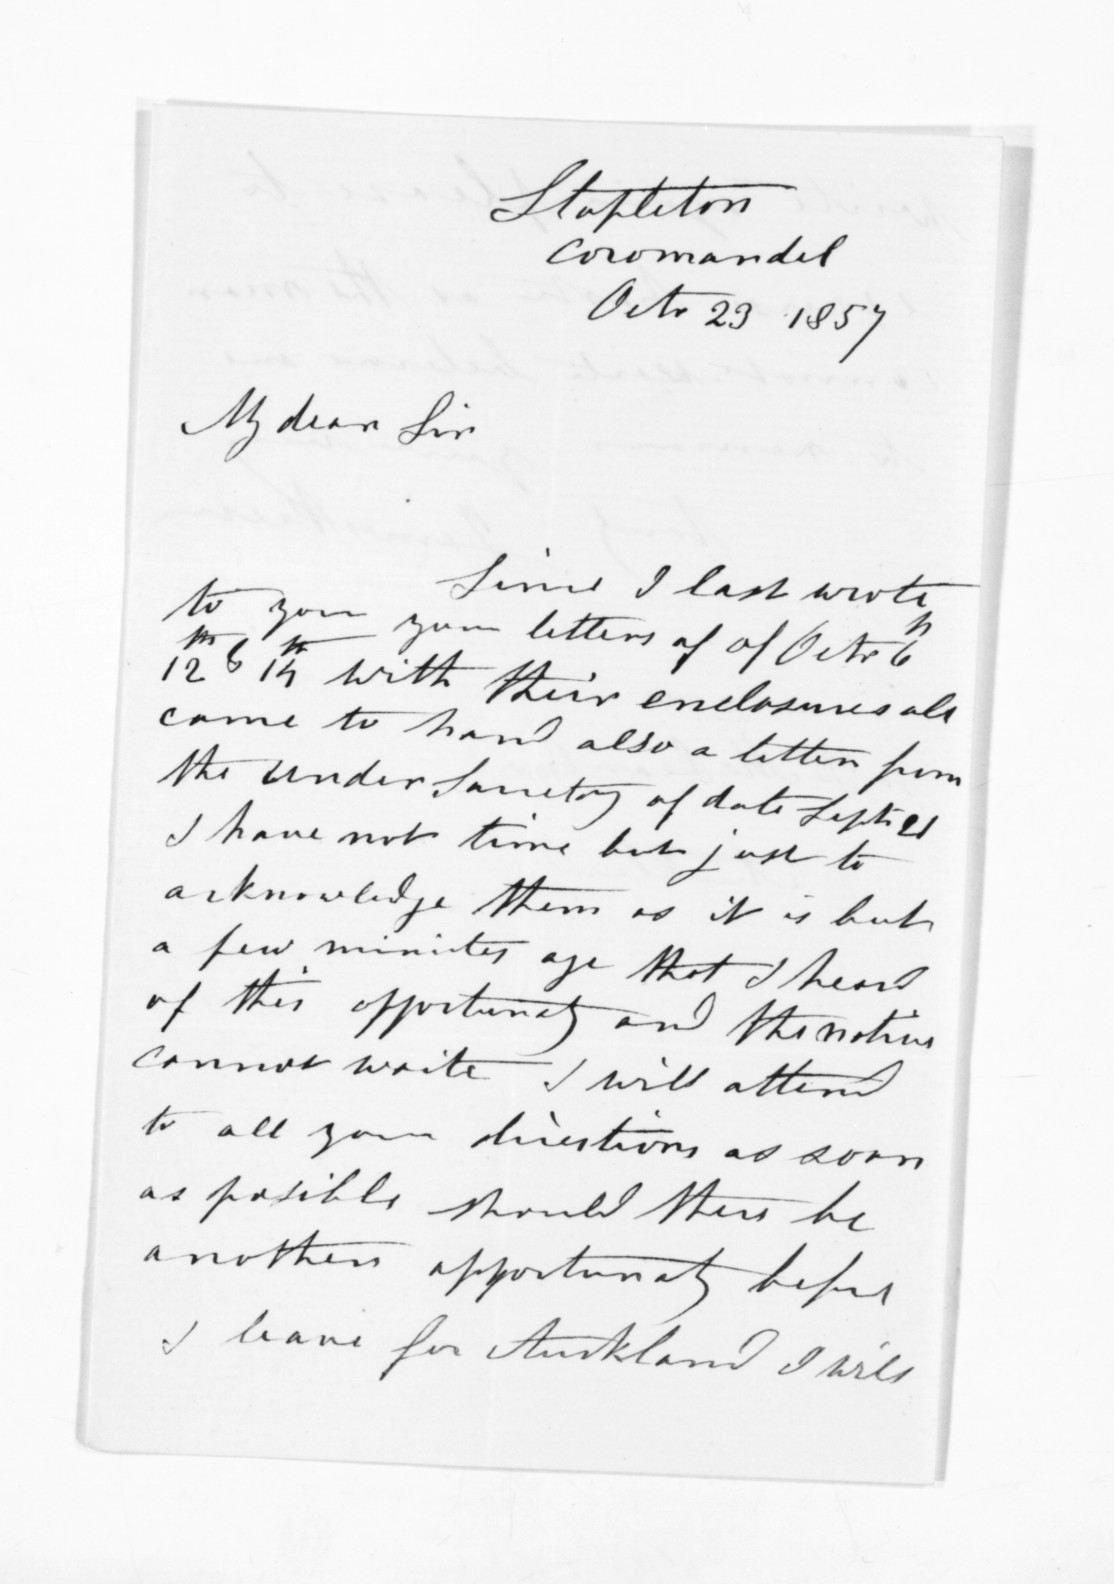 Stapleton
Coromandel
Octr 23 1857
My dear Sir
Since I last wrote
to you your letters of of Octr 6th
12th & 14th with their enclosures all
came to hand also a letter from
the Under Secretary of date Septr 21
I have not time but just to
acknowledge them as it is but
a few minites age that I heard
of this opportunaty and the native
cannot waite I will attend
to all your directions as soon
as posible should there be
another opportunaty before
I leave for Auckland I will